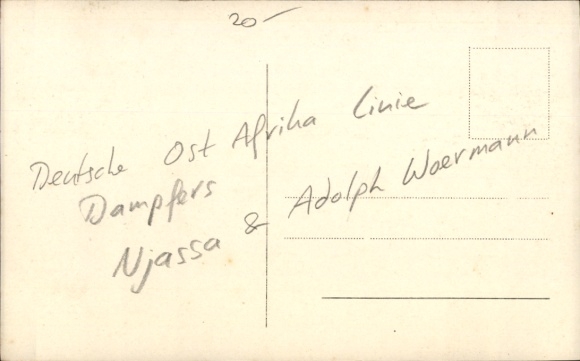 20-
Deutsche Ost Afrika Linie
Dampfers
Njassa & Adolph Woermann